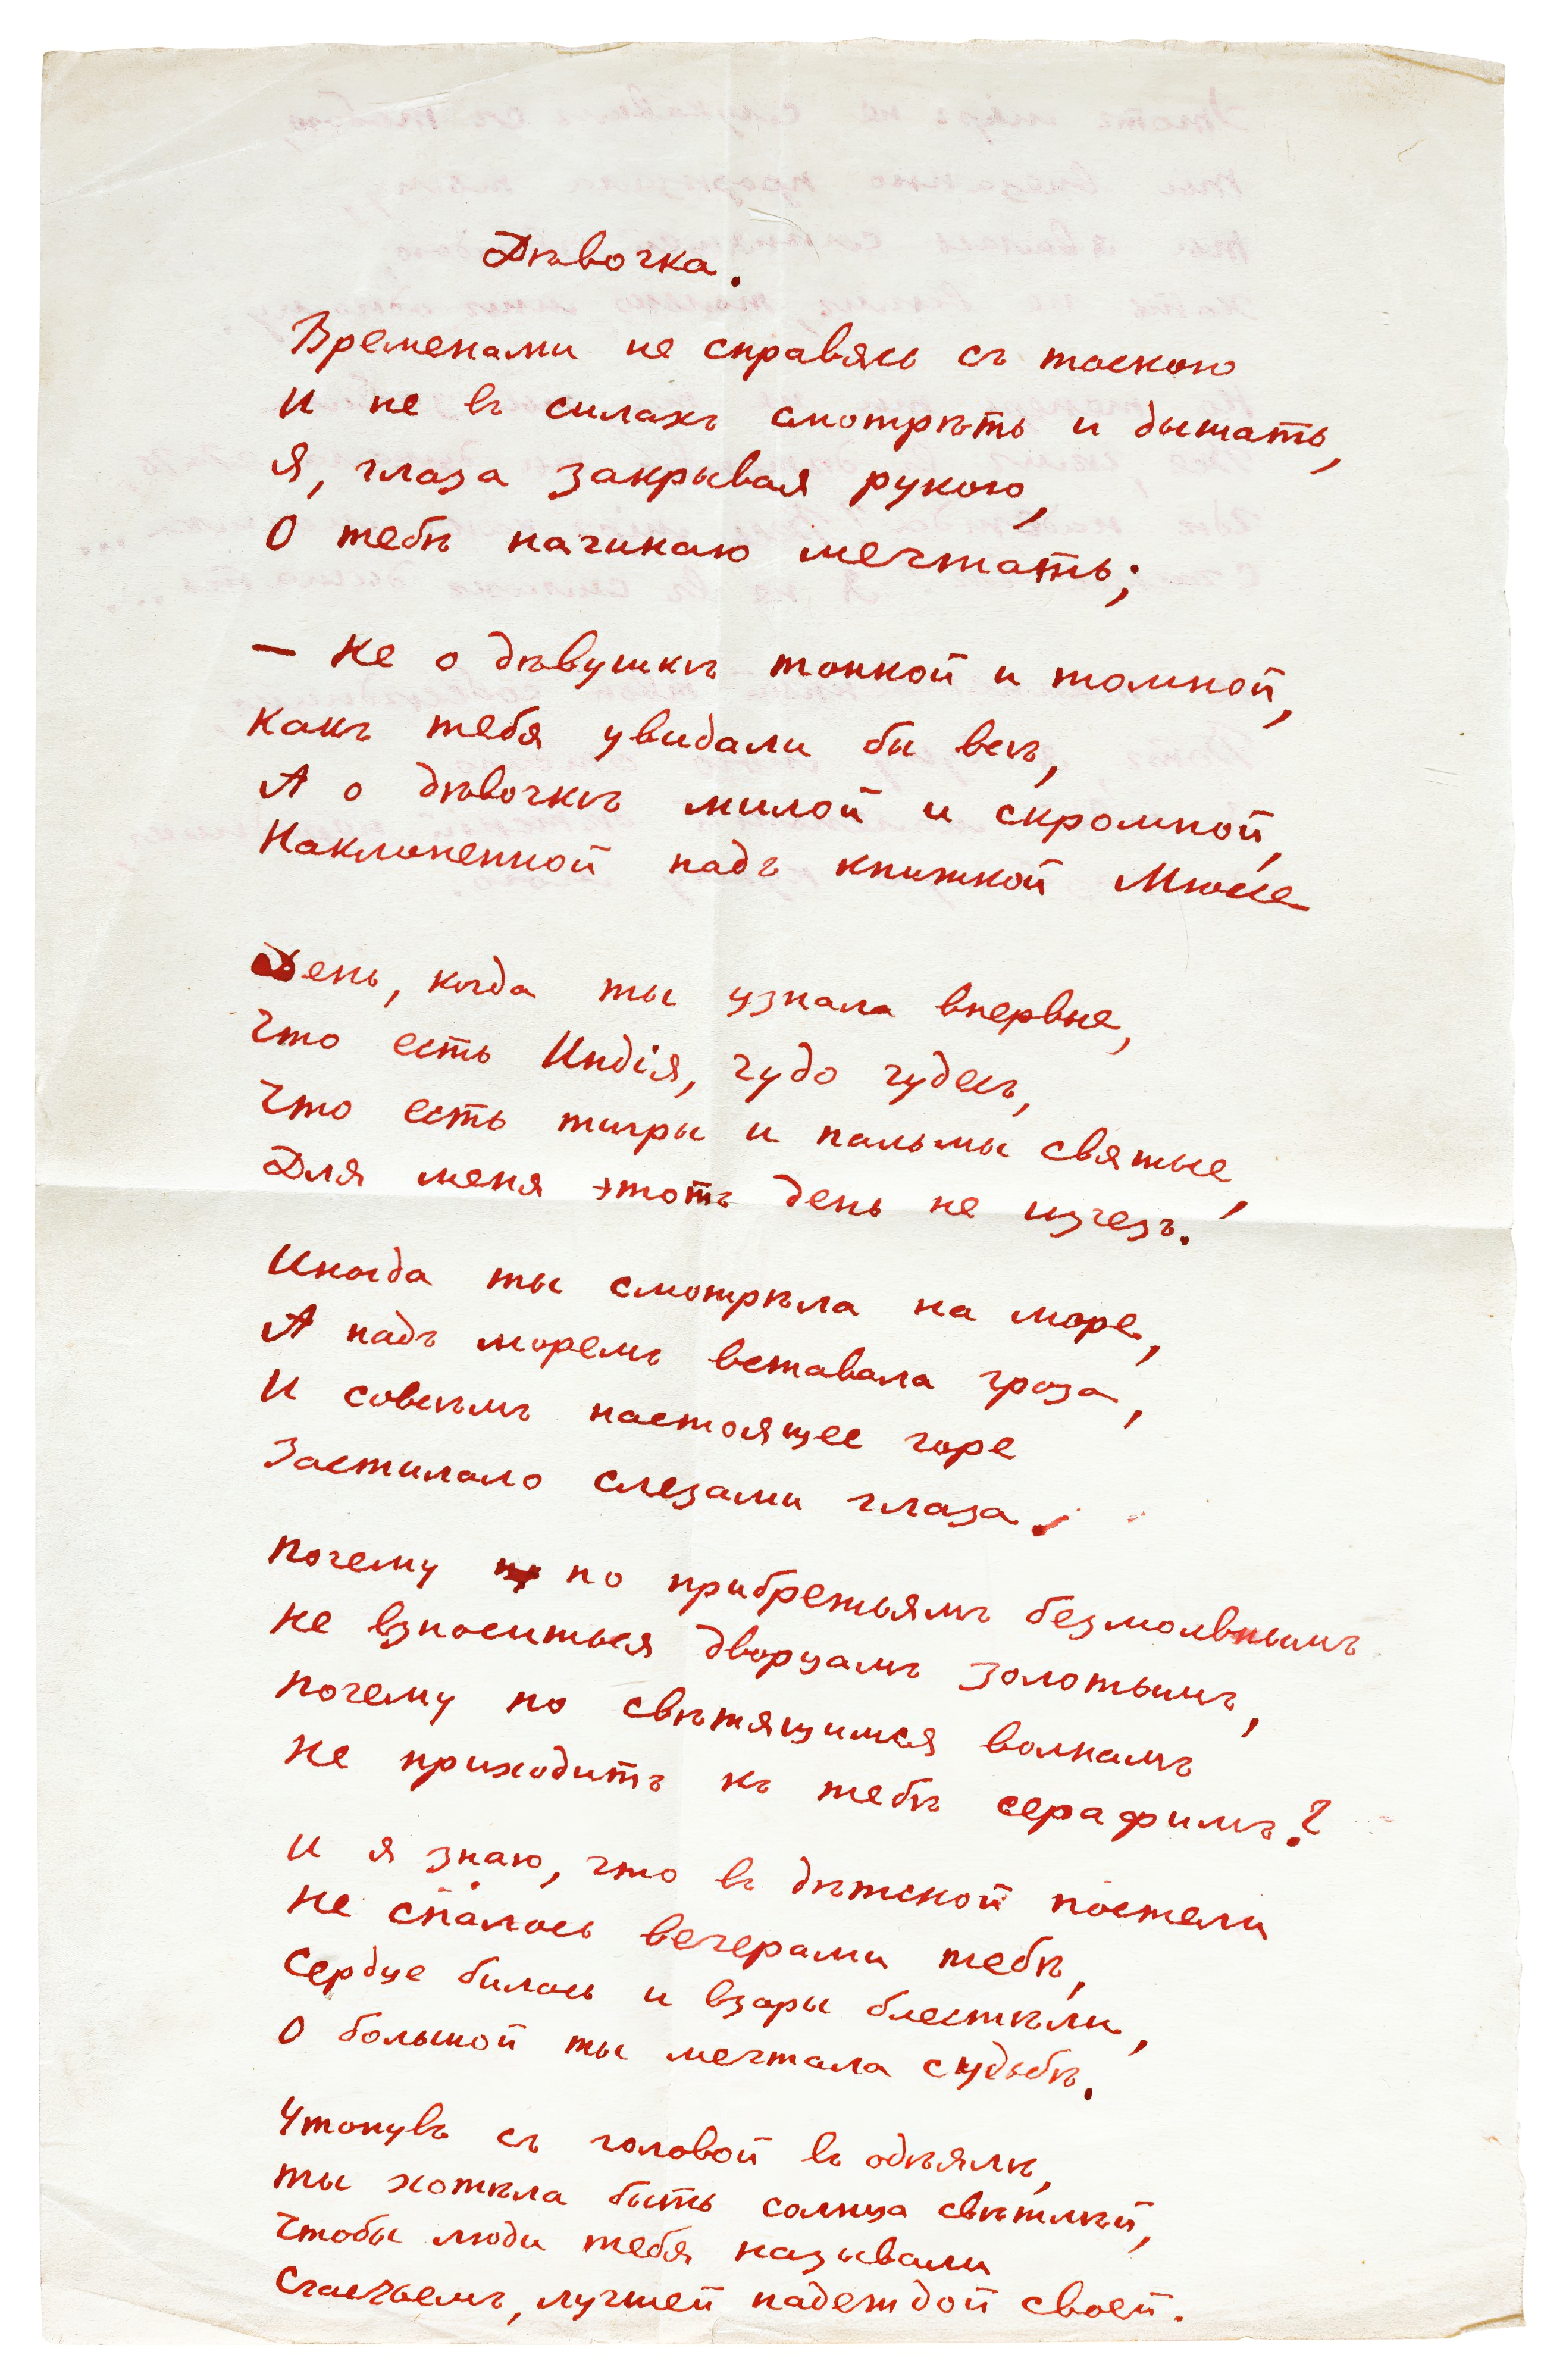 Дѣвочка.
Временами не справясь съ тоскою
И не въ силахъ смотрѣть и дышать,
Я, глаза закрывая рукою,
О тебѣ начинаю мечтать;
— Не о дѣвушкѣ тонкой и томной,
Какъ тебя увидали бы всѣ,
А о дѣвочкѣ милой и скромной,
Наклоненной надъ книжкой Мюссе
День, когда ты узнала впервые,
Что есть Индія, чудо чудесъ,
Что есть тигры и пальмы святые,
Для меня этотъ день не изчезъ.
Иногда ты смотрѣла на море,
А надъ моремъ вставала гроза,
И совсѣмъ настоящее горе
Застилало слезами глаза.
Почему по прибрежьямъ безмолвнымъ
Не взноситься дворцамъ золотымъ,
Почему по свѣтящимся волнамъ
Не приходитъ къ тебѣ серафимъ?
И я знаю, что въ дѣтской постели
Не спалось вечерами тебѣ,
Сердце билось и взоры блестѣли,
О большой ты мечтала судьбѣ.
Утонувъ съ головой въ одѣялѣ,
Ты хотѣла быть солнца свѣтлѣй,
Чтобы люди тебя называли
Счастьемъ, лучшей надеждой своей.